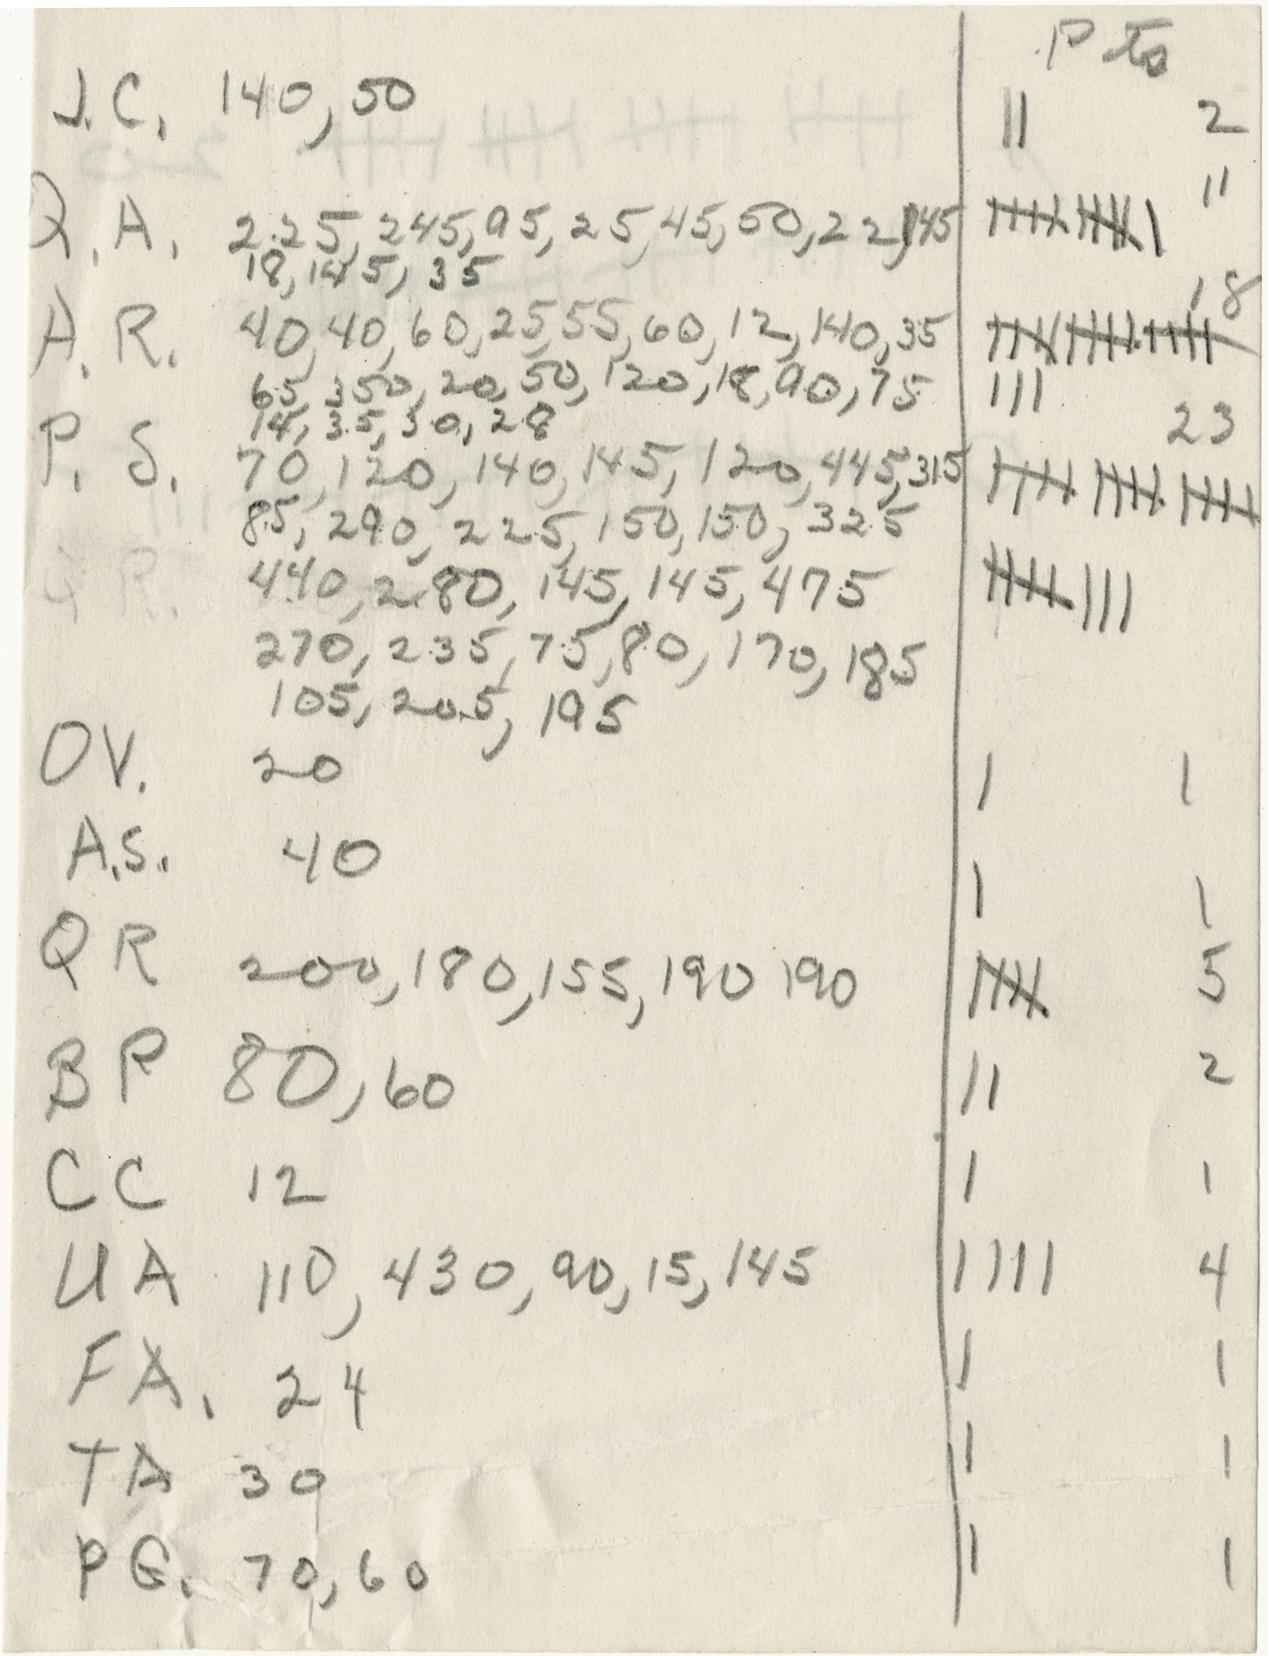 Pts
J.C. 140, 50 || 2
Q.A. 225, 245, 95, 25, 45, 50, 22, 145 |||| |||| | 11
18, 145, 35
18
A.R. 40, 40, 60, 25, 55, 60, 12, 140, 35 |||| |||| ||||
65, 350, 20, 50, 120, 18, 90, 75 |||
14, 35, 30, 28
23
P.S. 70, 120, 140, 145, 120, 445, 315 |||| |||| ||||
85, 290, 225, 150, 150, 325
440, 280, 145, 145, 475 |||| |||
270, 235, 75, 80, 170, 185
105, 205, 195
OV. 20 | 1
A.S. 40 | 1
QR 200, 180, 155, 190 190 |||| 5
BP 80, 60 || 2
CC 12 | 1
UA 110, 430, 90, 15, 145 |||| 4
FA. 24 | 1
TA 30 | 1
PG. 70, 60 | 1